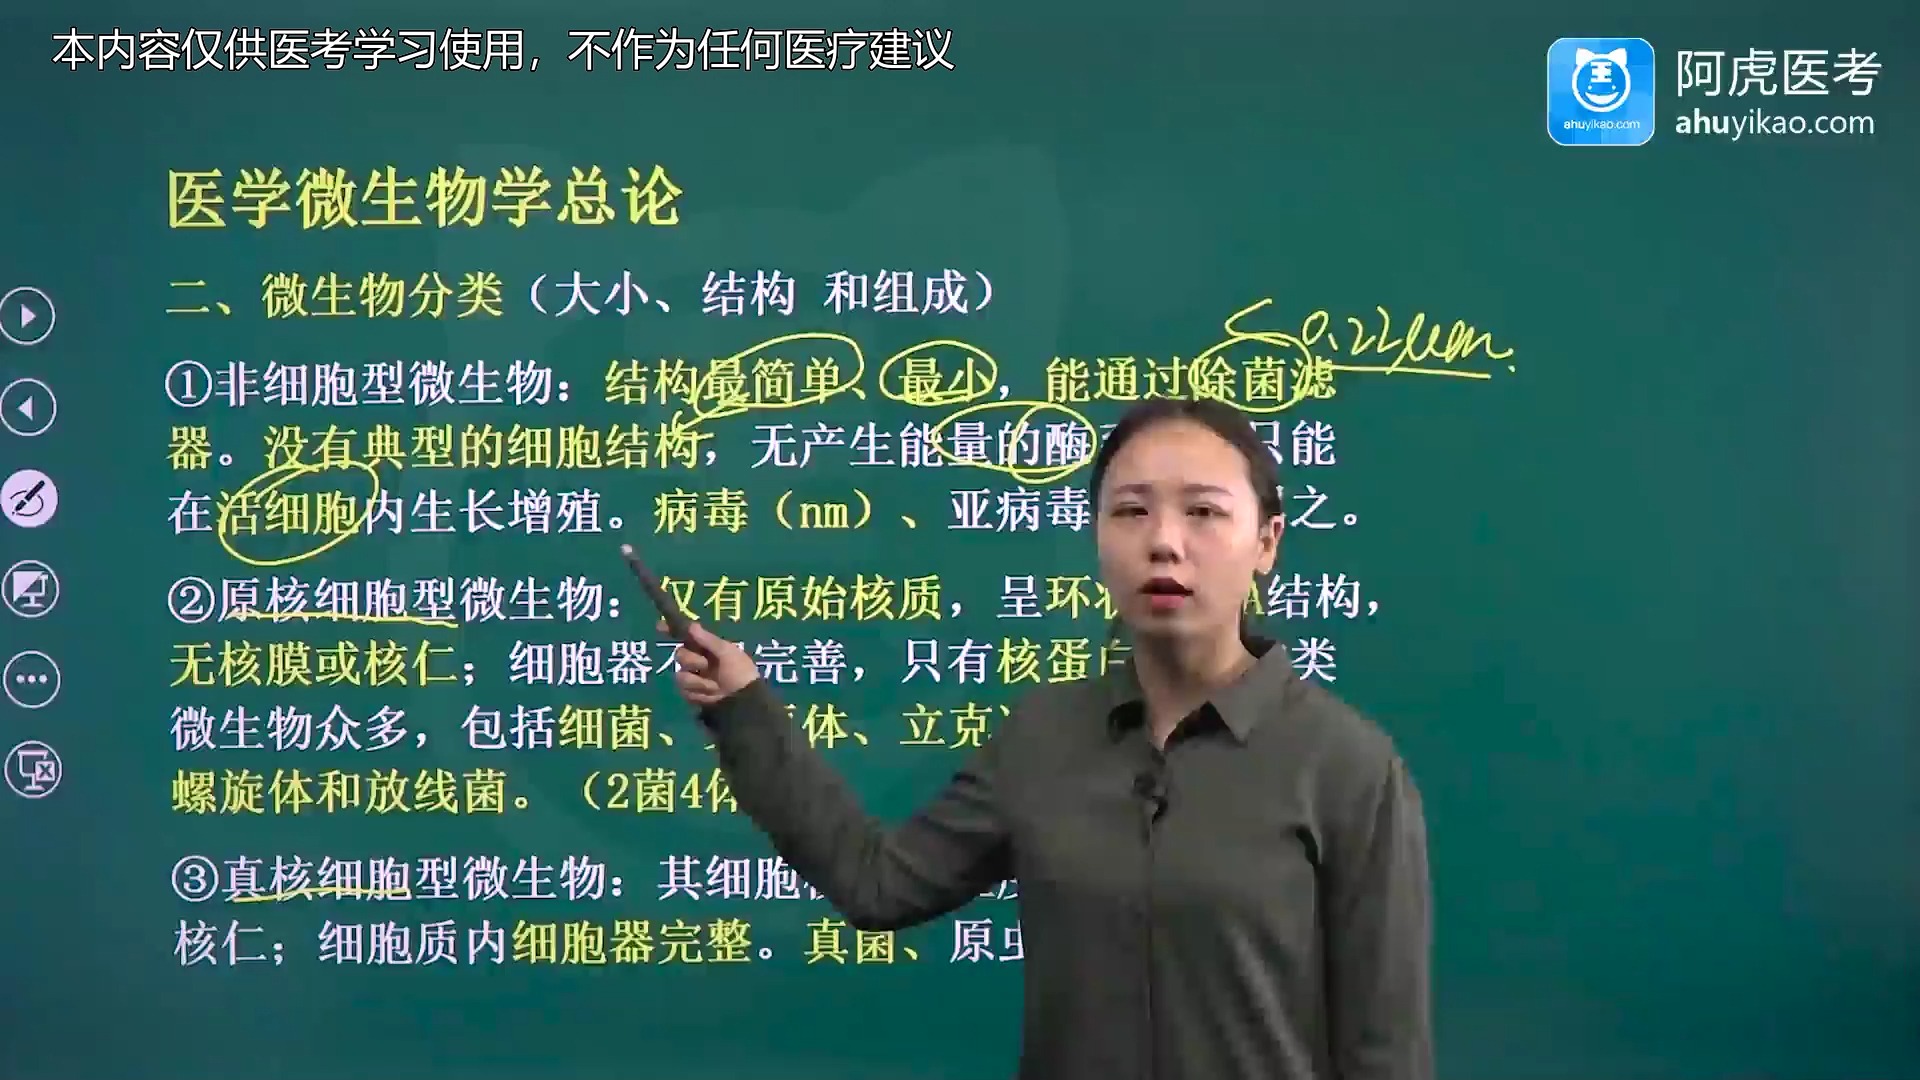 本内容仅供医考学习使用，不作为任何医疗建议
阿虎医考
ahuyikao.com
ahuyikao.com
医学微生物学总论
二、微生物分类（大小、结构 和组成）
<0.22μm.
①非细胞型微生物：结构最简单、最小，能通过除菌滤
器。没有典型的细胞结构，无产生能量的酶 只能
在活细胞内生长增殖。病毒（nm）、亚病毒 之。
②原核细胞型微生物：仅有原始核质，呈环 A结构，
无核膜或核仁；细胞器不 完善，只有核蛋白 类
微生物众多，包括细菌、 体、立克
螺旋体和放线菌。（2菌4体
③真核细胞型微生物：其细胞
核仁；细胞质内细胞器完整。真菌、原虫